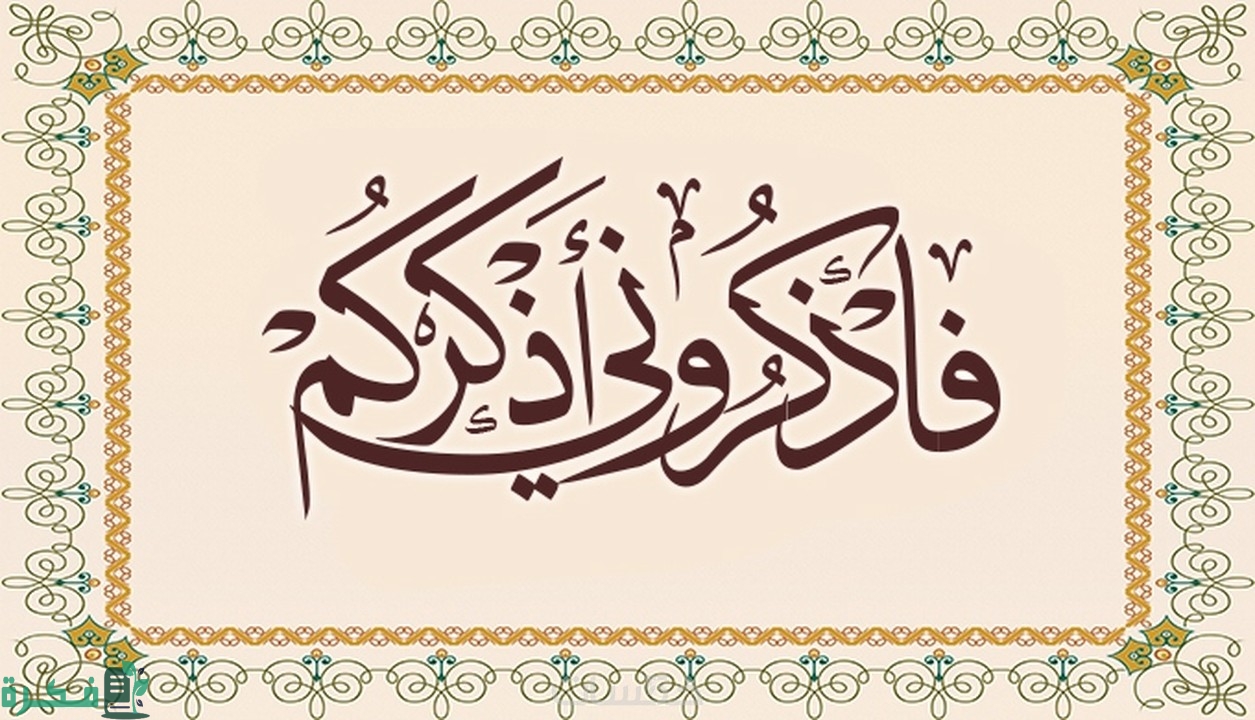 فَاذْكُرُونِي أَذْكُرْكُمْ
فكرة